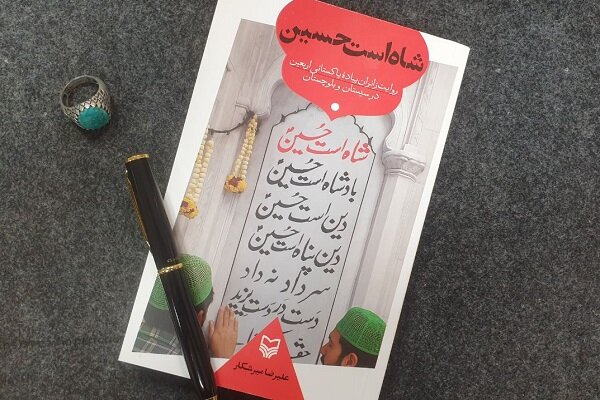 شاه است حسین
روایت زائران پیادهٔ پاکستانی اربعین
در سیستان و بلوچستان
شاه است حسین
بادشاه است حسین
دین است حسین
دین پناه است حسین
سرداد نه داد
دست در دست یزید
حقا
علیرضا میرشکار